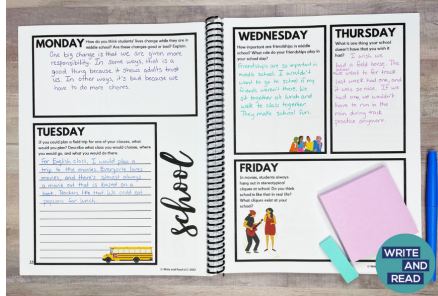 MONDAY
How do you think students' lives change while they are in
middle school? Are these changes good or bad? Explain.
One big change is that we are given more
responsibility. In some ways, that is a
good thing because it shows adults trust
us. In other ways, it's bad because we
have to do more chores.
TUESDAY
If you could plan a field trip for one of your classes, what
would you plan? Describe what class you would choose, where
you would go, and what you would do there.
For English class, I would plan a
trip to the movies. Everyone loves
movies, and there's almost always
a movie out that is based on a
book. Teachers like that. We could eat
popcorn for lunch.
school
WEDNESDAY
How important are friendships in middle
school? What role do your friendships play in
your school day?
Friendships are so important in
middle school. I wouldn't
want to go to school if my
friends weren't there. We
sit together at lunch and
walk to class together.
They make school fun.
THURSDAY
What is one thing your school
doesn't have that you wish it
had?
I wish we
had a field house. We
went to for track
last week had one, and
it was so nice. If we
had one, we wouldn't
have to run in the
rain during track
practice anymore.
FRIDAY
In movies, students always
hang out in stereotypical
cliques at school. Do you think
school is like that in real life?
What cliques exist at your
school?
WRITE
AND
READ